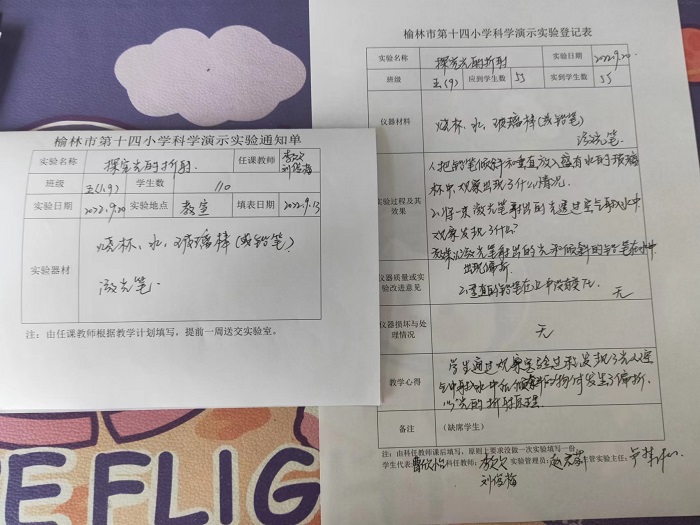 榆林市第十四小学科学演示实验通知单
实验名称 探究光的折射. 任课教师 李文 刘俊梅
班级 五(1.9) 学生数 110
实验日期 2022.9.20 实验地点 教室 填表日期 2022.9.13
实验器材 烧杯、水、玻璃棒(或铅笔)
激光笔.
注：由任课教师根据教学计划填写，提前一周送交实验室。
榆林市第十四小学科学演示实验登记表
实验名称 探究光的折射 实验日期 2022.9.20.
班级 五(9) 应到学生数 55 实到学生数 55
仪器材料 烧杯、水、玻璃棒(或铅笔)
激光笔.
1.把铅笔倾斜和垂直放入盛有水的玻璃
杯中观察出现了什么情况.
实验过程及其效果
2.将一束激光笔射出的光通过空气射入水中
观察发现了什么?
效果:1.激光笔射出的光和倾斜的铅笔在水中
出现偏折.
2.垂直的铅笔在水中没有变化.
仪器质量或实验改进意见 无
仪器损坏与处理情况 无
教学心得 学生通过观察实验过程发现了光从空
气中射入水中和倾斜的物体时发生了偏折.
以光的折射原理.
备注 (缺席学生)
注：由科任教师课后填写，原则上要求没做一次实验填写一份。
学生代表: 曹欣怡 科任教师: 李文 实验管理员: 主管实验主任:
刘俊梅
EFLIG